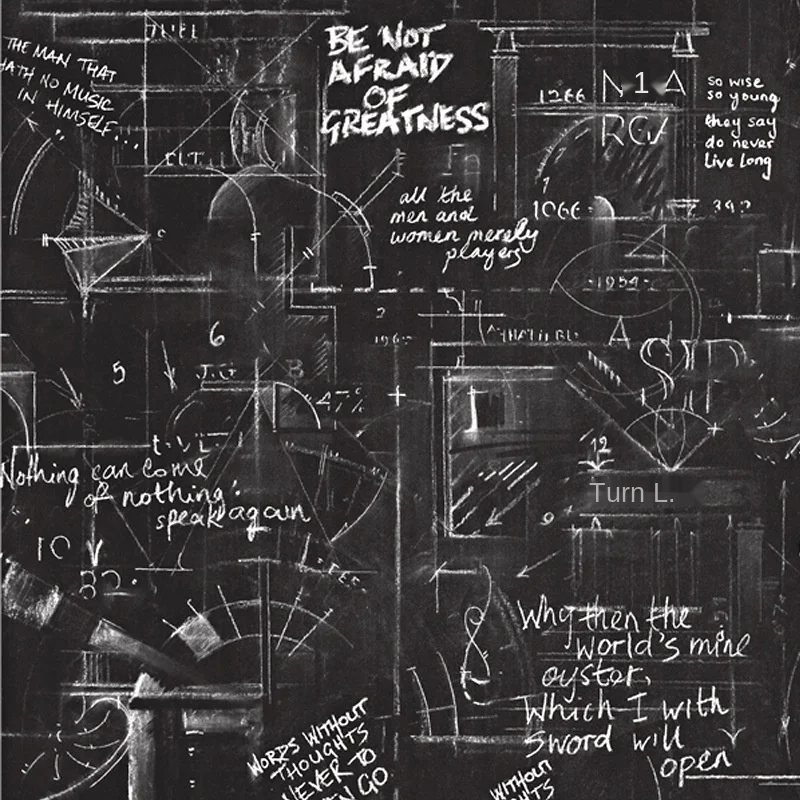 THE MAN THAT
HATH NO MUSIC
IN HIMSELF...
BE NOT
AFRAID
OF
GREATNESS
1266
N 1 A
so wise
so young
they say
do never
live long
all the
men and
women merely
players
1066
1954
6
5
J.G
B
A
12
Turn L.
Nothing can come
of nothing:
speak again
10
Why then the
world's mine
oyster,
Which I with
sword will
open
WORDS WITHOUT
THOUGHTS
NEVER TO
GO
WITHOUT